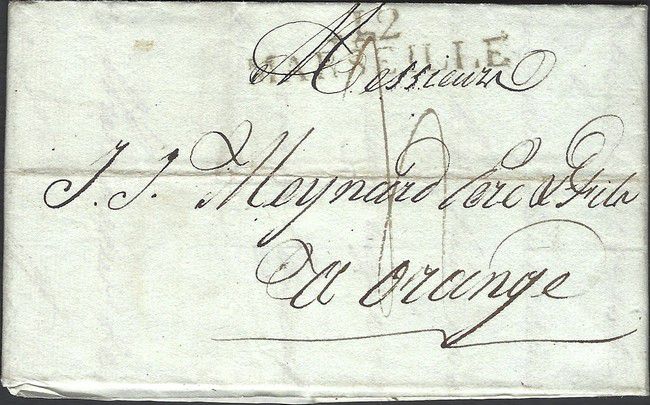 12
MARSEILLE
Messieurs
J. J. Meynard Pere & Fils
a orange